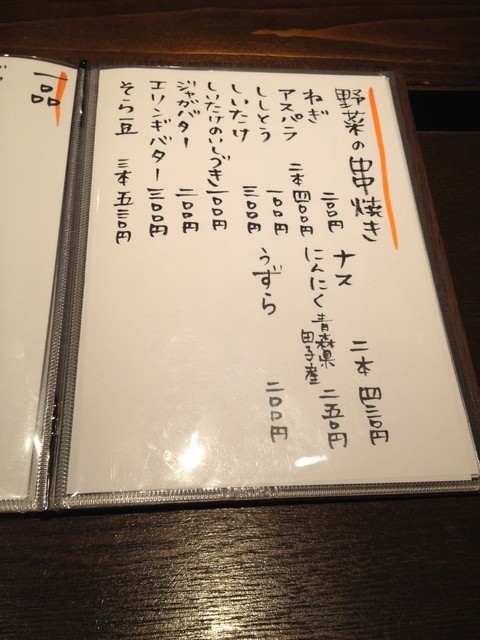 野菜の串焼き
ねぎ 二〇〇円
アスパラ 二本 四〇〇円
ししとう 一〇〇円
しいたけ 三〇〇円
しいたけのいしづき 一〇〇円
ジャガバター 二〇〇円
エリンギバター 三〇〇円
そら豆 三本 五三〇円
ナス 二本 四三〇円
にんにく 青森県田子産 二五〇円
うずら 二〇〇円
一品